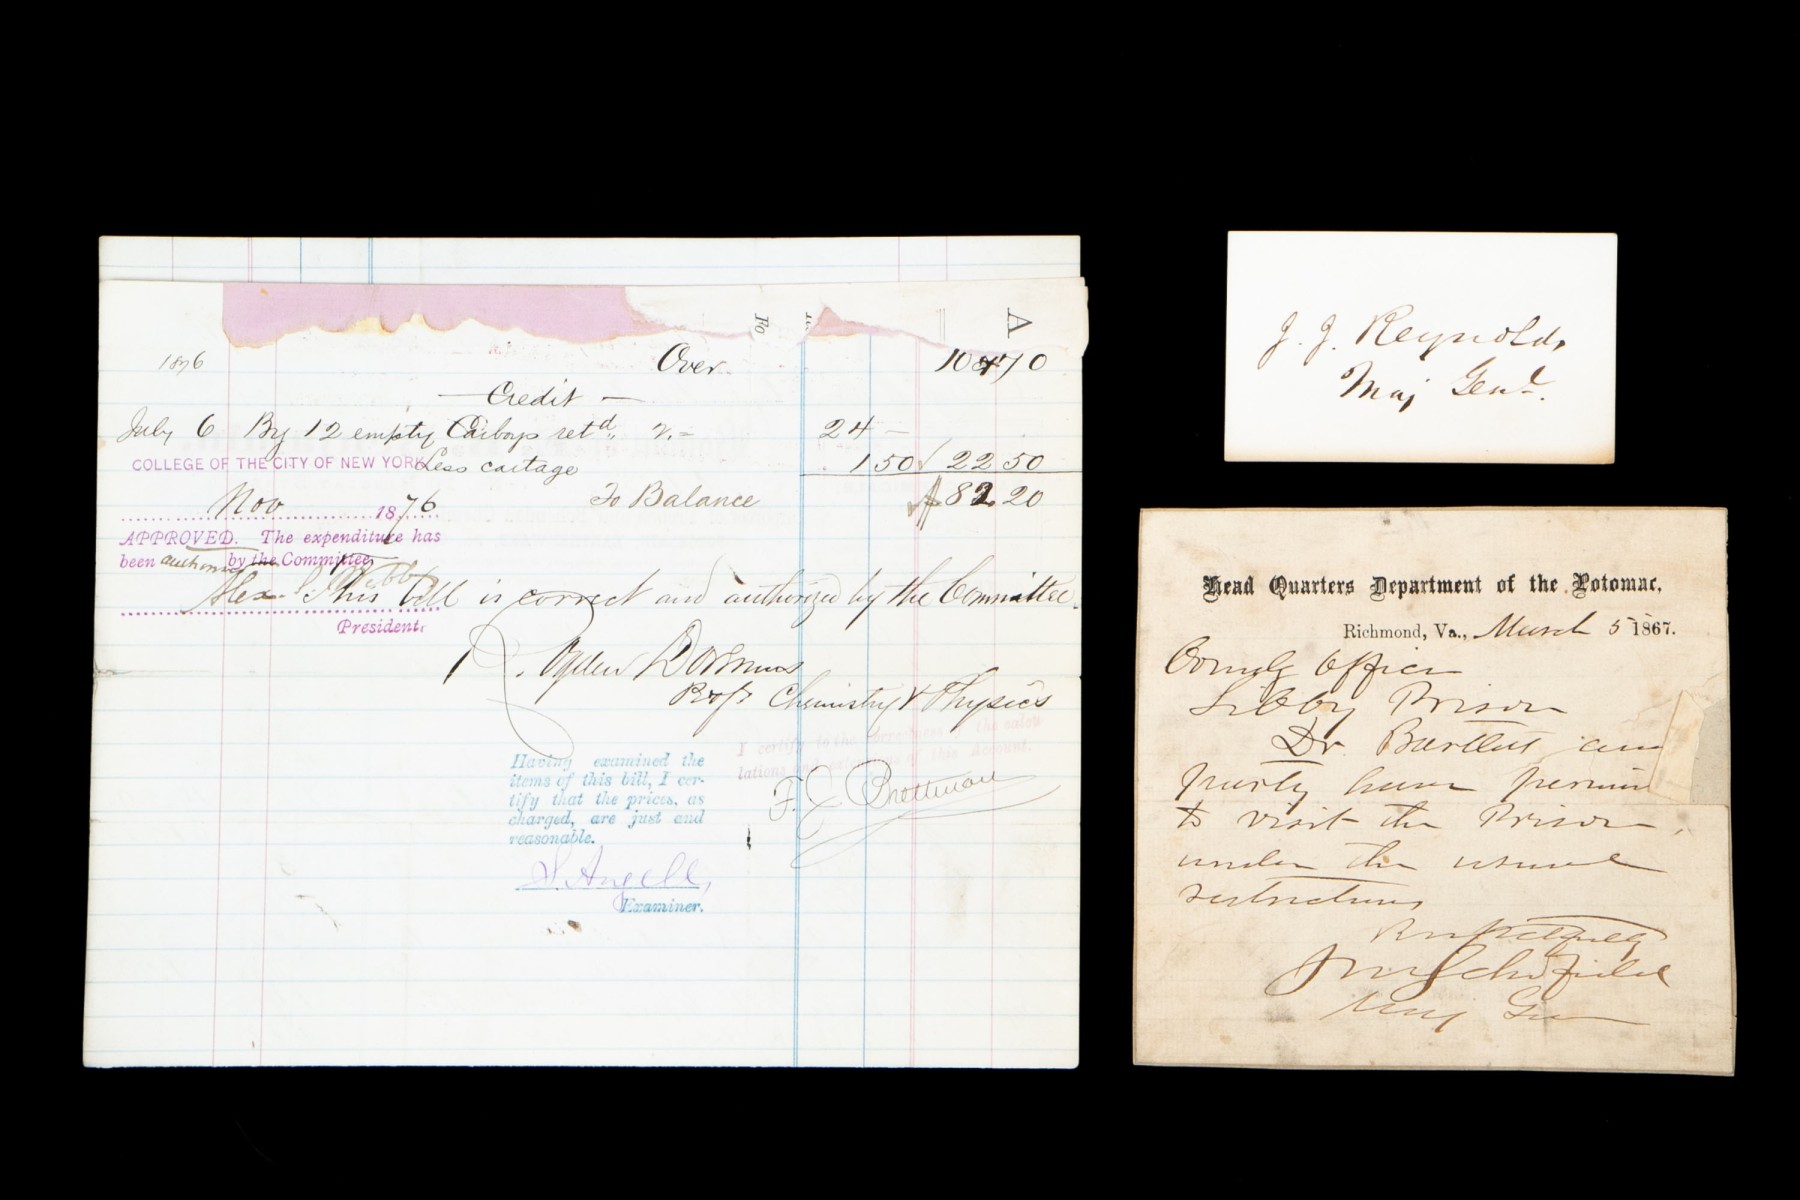 A
Fo
1876 Over 104 70
Credit
July 6 By 12 empty Carboys retd. 2.= 24 –
COLLEGE OF THE CITY OF NEW YORK Less cartage 1 50 22 50
Nov 1876 To Balance $ 82 20
APPROVED. The expenditure has
been authorized by the Committee
Alex. S. Webb
This bill is correct and authorized by the Committee.
President.
R. Ogden Doremus
Prof. Chemistry & Physics
I certify to the correctness of the
lations and of this account.
Having examined the
items of this bill, I cer-
tify that the prices, as
charged, are just and
reasonable.
F.
S. Angell,
Examiner.
J. J. Reynolds,
Maj Genl.
Head Quarters Department of the Potomac,
Richmond, Va., March 5 1867.
Comdg Officer
Libby Prison
Dr. Bartlett
party have
to visit the Prison,
under the usual
restrictions
Respectfully
J M Schofield
Maj Gen